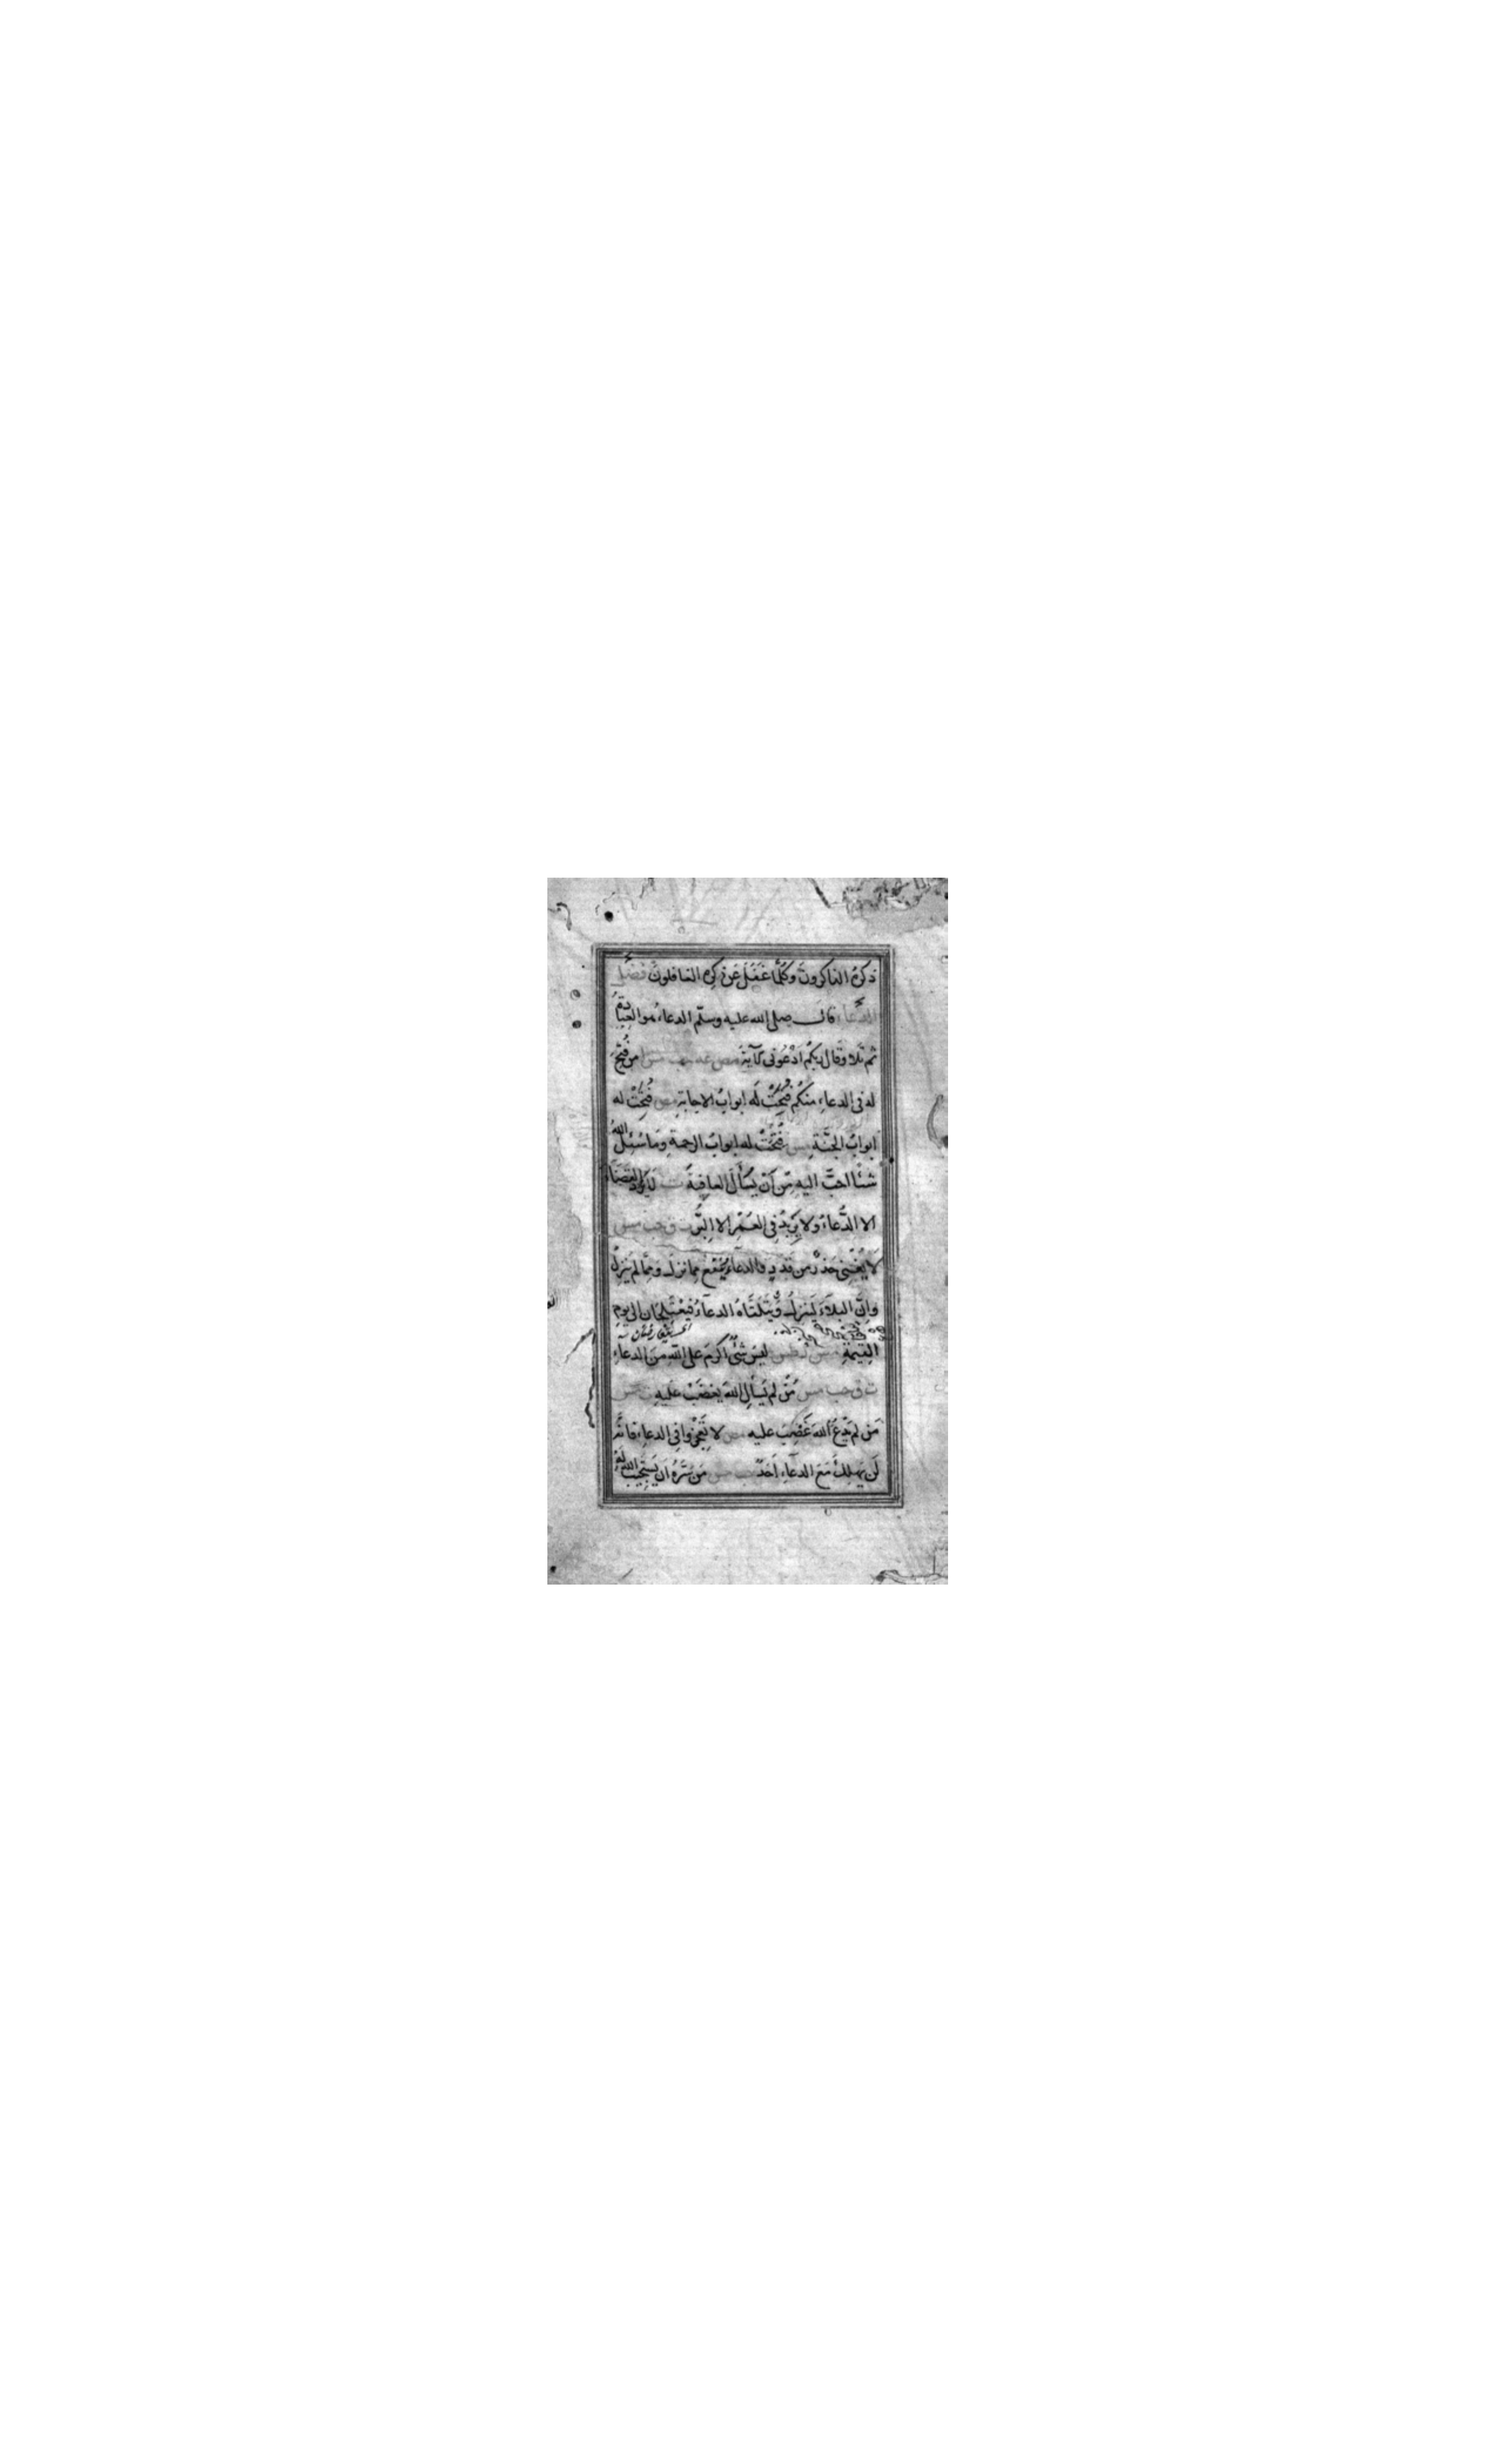 ذكرهُ الذاكرونَ وكُلَّما غَفَلَ عَن ذكرِه الغافلونَ فضلُ
الدُّعاءِ قال صلى الله عليه وسلّم الدعاءُ هو العِبادةُ
ثم تلا وقال ربكمُ ادْعُونى الآيةَ مص عه حب مس من فُتِحَ
له فى الدعاءِ منكُم فُتِحَتْ لَه ابوابُ الاجابةِ مص فُتِحَتْ له
ابوابُ الجَنَّةِ مس فُتِحَتْ له ابوابُ الرحمةِ وما سُئِلَ اللهُ
شيئًا احبَّ اليه مِن اَنْ يُسْألَ العافيةَ ت لا يَرُدُّ القضاءَ
الا الدُّعاءُ ولا يَزيدُ فى العُمْرِ الا البِرُّ ت ق حب مس
لا يُغْنِى حَذرٌ من قَدَرٍ والدعاءُ يَنْفَعُ مما نزلَ ومِمَّا لم يَنزِلْ
وانَّ البلاءَ لَيَنزِلُ وَيَتَلَقَّاهُ الدعاءُ فيَعْتَلِجَانِ الى يوم
القِيٰمةِ مس ر طس ليسَ شئٌ اكرمَ على اللهِ منَ الدعاءِ
ت ق حب مس مَنْ لم يَسألِ اللهَ يغضَبْ عليه ت مس
مَن لم يَدْعُ اللهَ غَضِبَ عليه مص لا تَعجِزُوا فى الدعاءِ فانَّه
لَن يهلِكَ مَعَ الدعاءِ اَحَدٌ حب مس مَن سَرَّهُ اَن يَستَجِيبَ اللهُ لَهُ